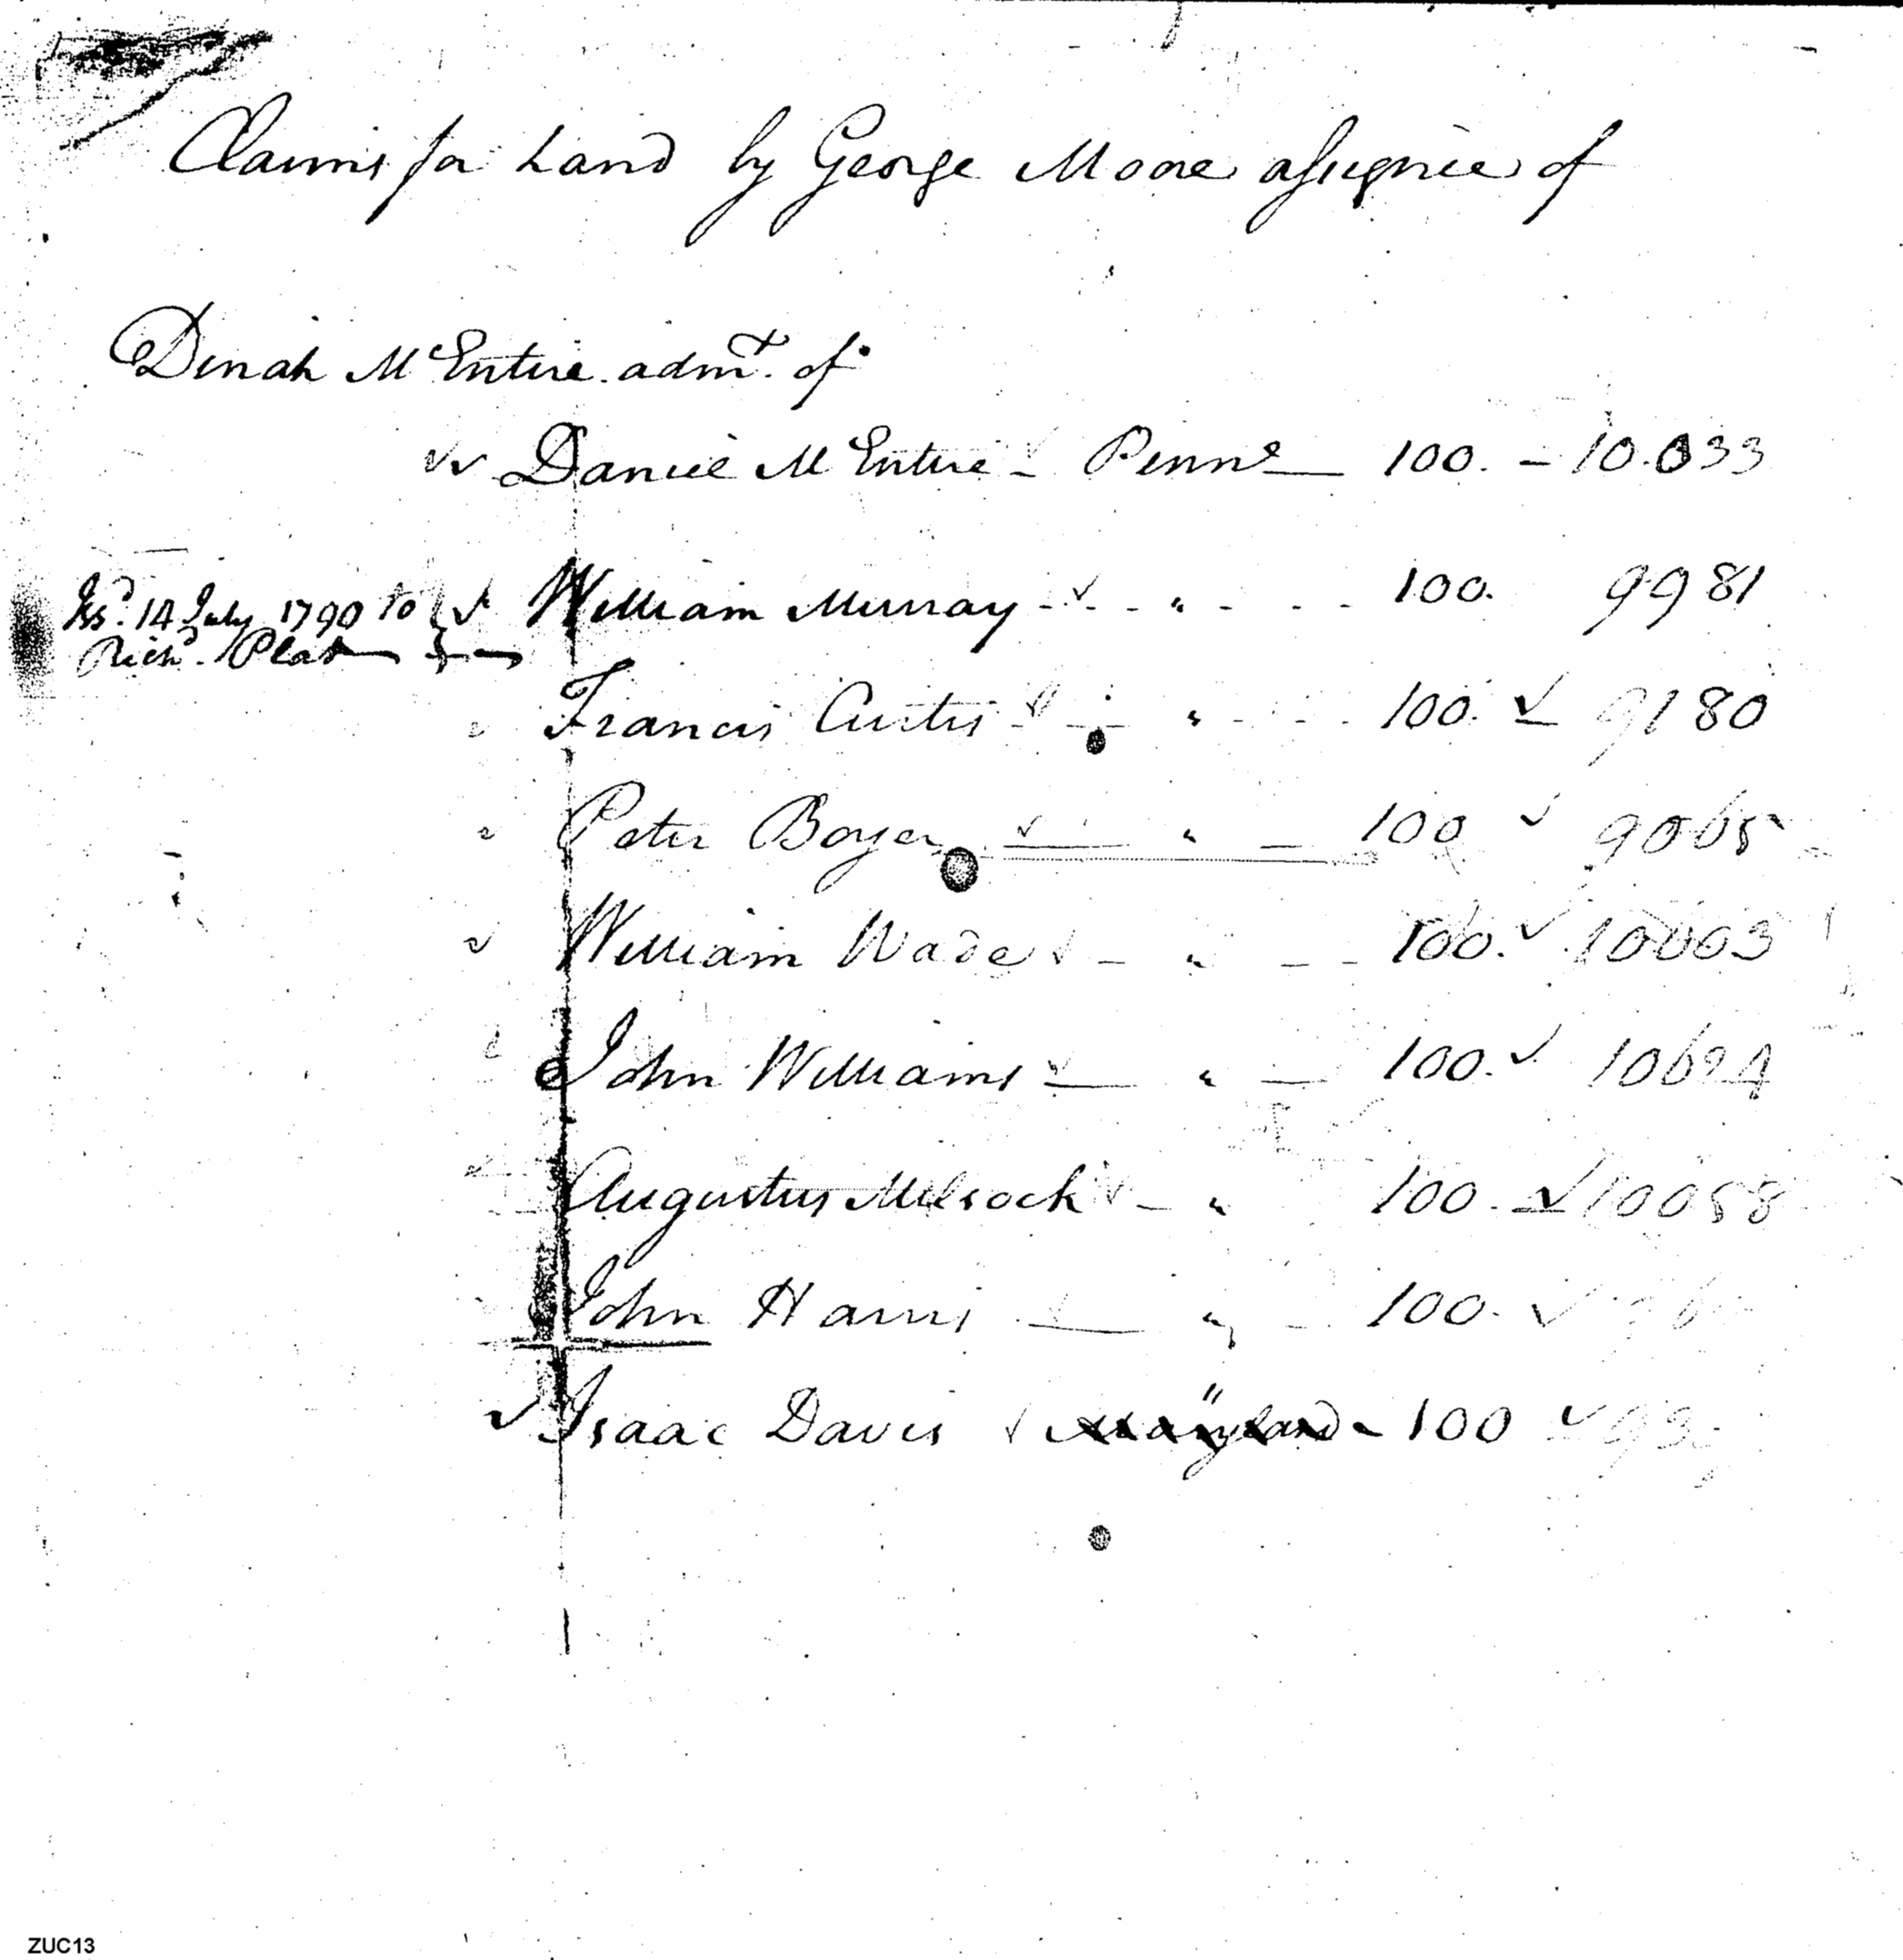 Claims for Land by George Moore assignee of
Dinah McEntire admx. of
Daniel McEntire - Penna — 100. - 10.033
Iss'd. 14 July 1790 to } William Murray " 100. 9981
Rich'd. Platt }
Francis Curtis " 100. 9180
Peter Boyer " 100 9065
William Wade " 100. 10003
John Williams " 100. 10694
Augustus Milsock " 100. 10058
John Harris " 100.
Isaac Davis " Maryland - 100